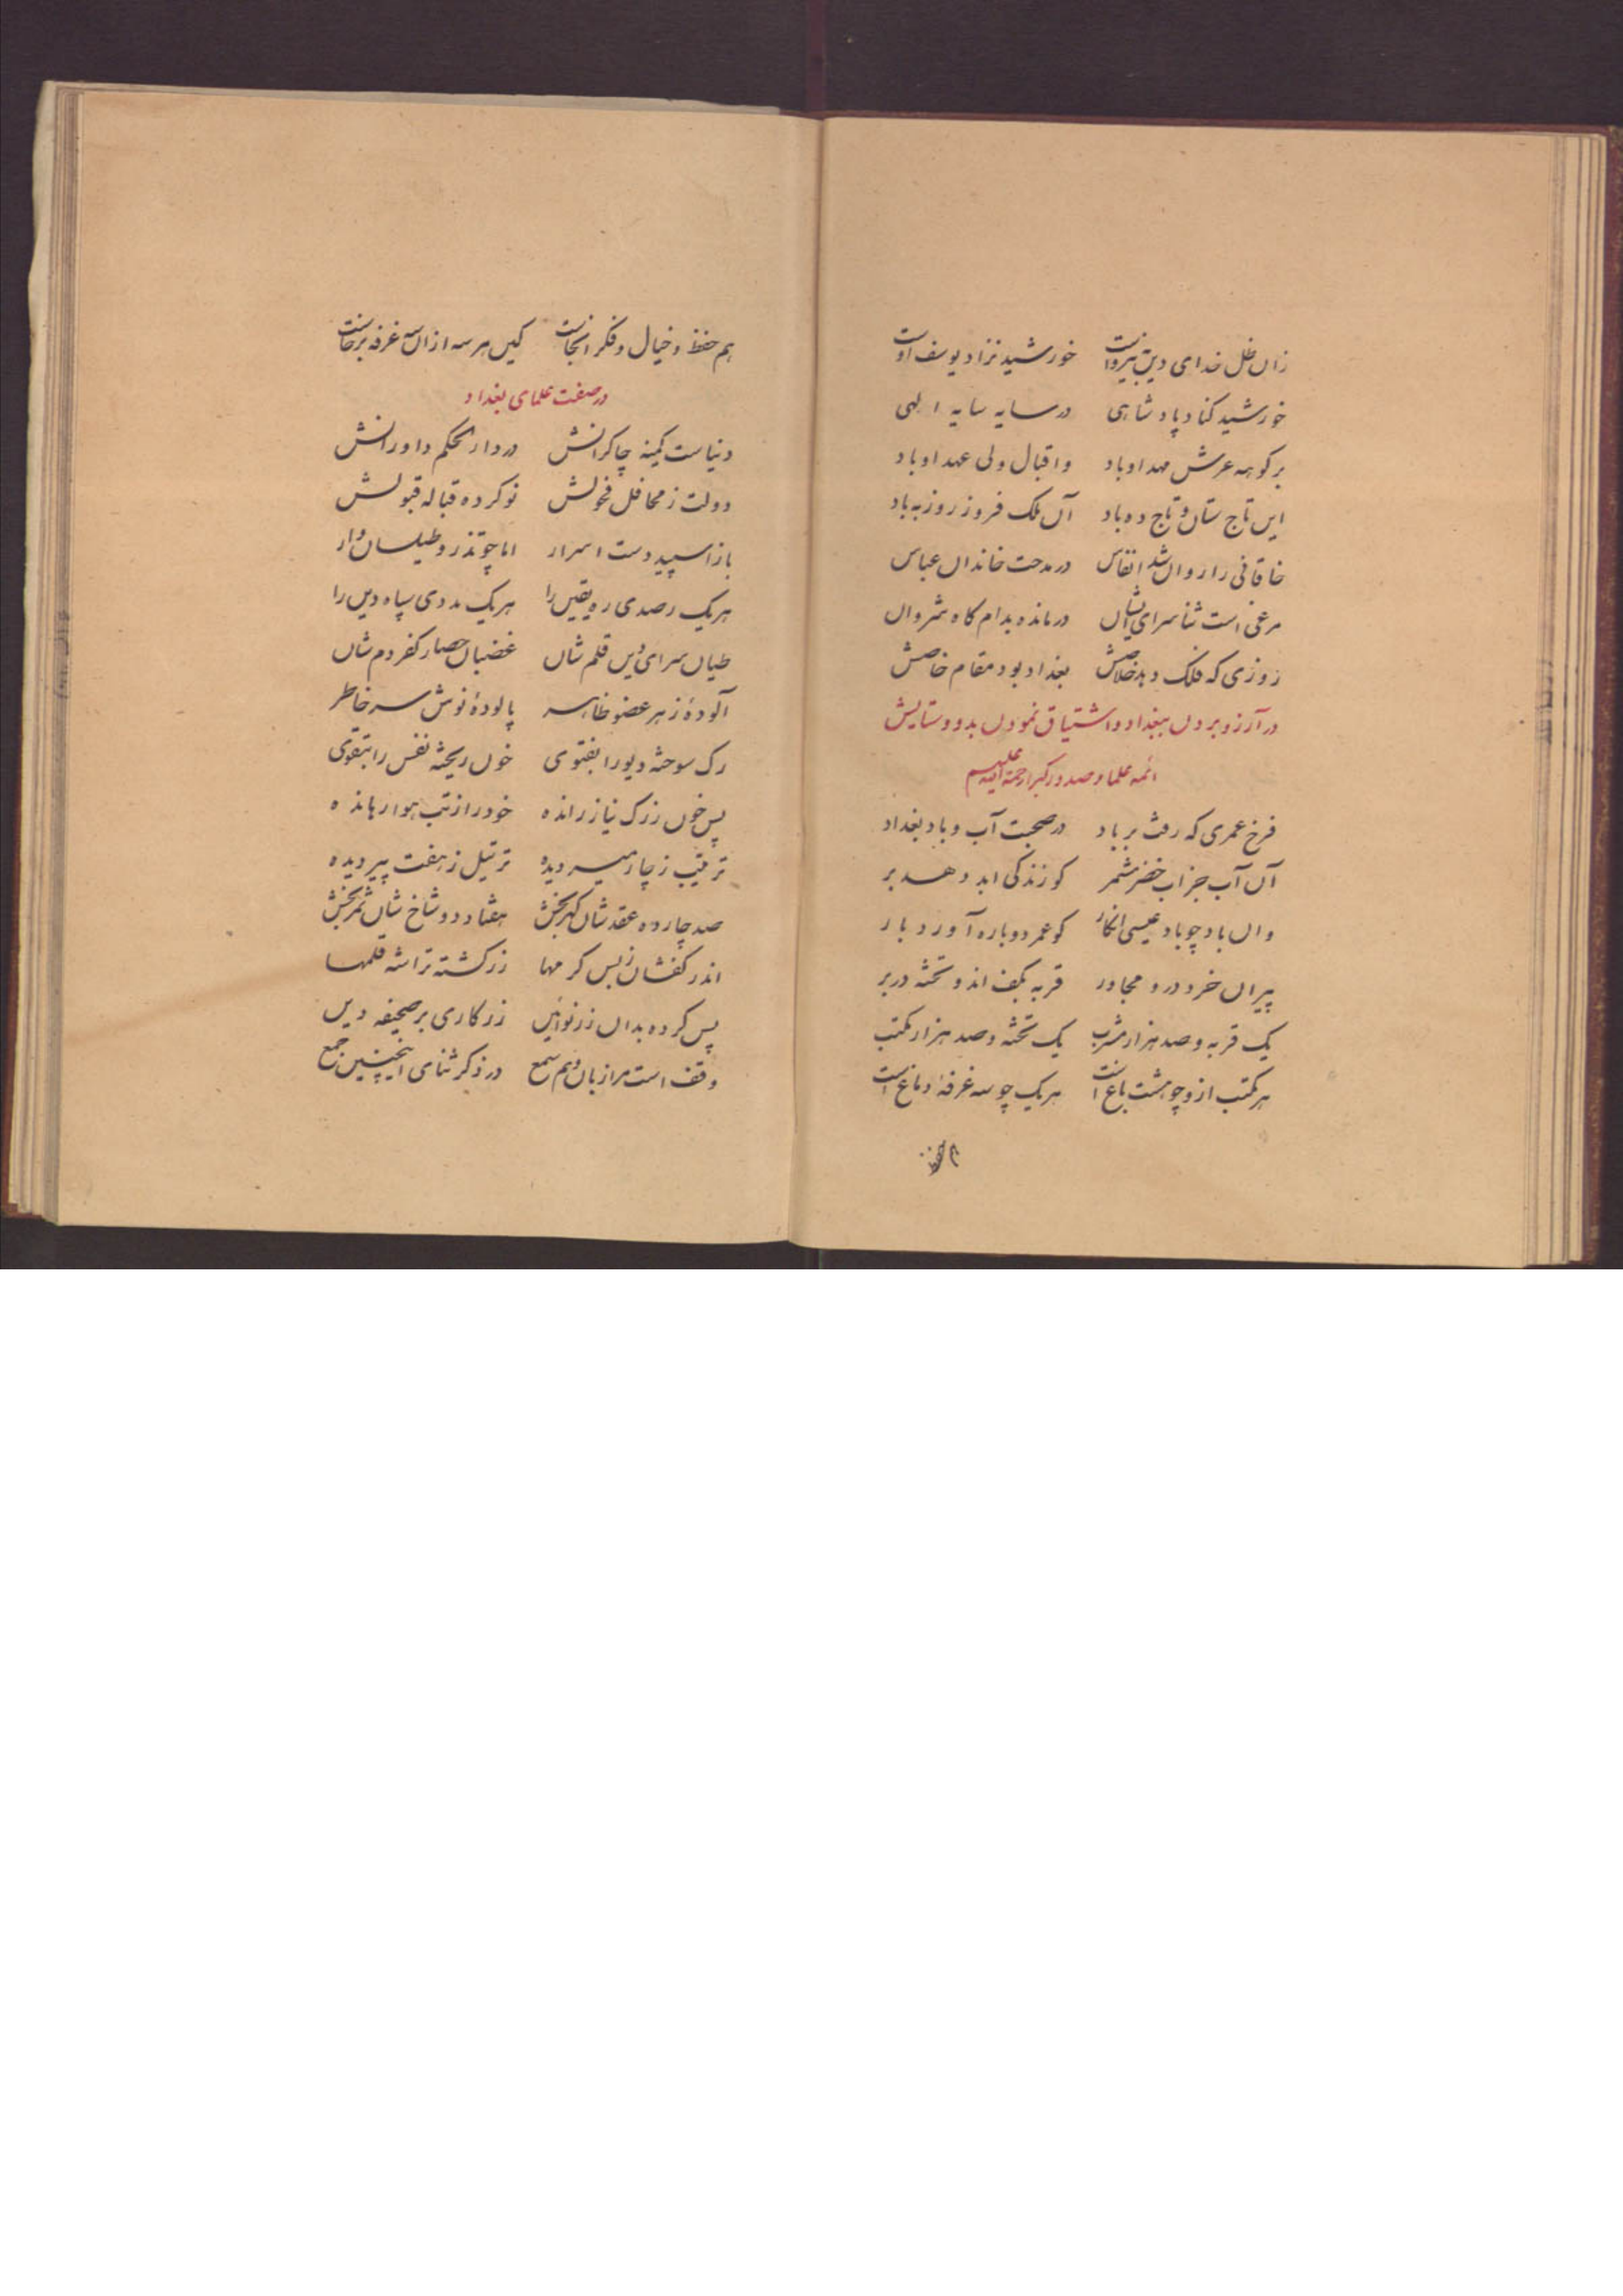 زان ظل خدای دین بنیروست خورشید نژاد یوسف اوست
خورشید کناد پادشاهی در سایه سایه الهی
بر کوهه عرش مهد او باد و اقبال ولی عهد او باد
این تاج ستان و تاج ده باد آن ملک فروز روز به باد
خاقانی را روان شد انفاس در مدحت خاندان عباس
مرغی است ثنا سرای ایشان در مانده بدام کاه شروان
روزی که فلک دهد خلاصش بغداد بود مقام خاصش
در آرزو بردن ببغداد و اشتیاق نمودن بدو و ستایش
ائمه علما و صدور کبار رحمة الله علیهم
فرخ عمری که رفت بر باد در صحبت آب و باد بغداد
آن آب جز اب خضر مشمر کو زندگی ابد دهد بر
وان باد چو باد عیسی انکار کو عمر دوباره آورد بار
پیران خرد درو مجاور قربه بکف اند و تخته در بر
یک قربه و صد هزار مشرب یک تخته و صد هزار مکتب
هر مکتب ازو چو هشت باغ است هر یک چو سه غرفه دماغ است
هم حفظ
هم حفظ و خیال و فکر انجاست کین هر سه ازان سه غرفه برخاست
در صفت علمای بغداد
دنیاست کمینه چاکرانش در دار الحکم داورانش
دولت ز محافل فحولش نو کرده قباله قبولش
باز اسپید دست اسرار اما چو تذرو طیلسان دار
هر یک رصدی ره یقین را هر یک مددی سپاه دین را
طیان سرای دین قلم شان غضبان حصار کفر دم شان
آلودهٔ زهر عضو ظاهر پالودهٔ نوش سر خاطر
رک سوخته دیو را بفتوی خون ریخته نفس را بتقوی
پس خون ز رک نیاز رانده خود را از تب هوا رهانده
ترتیب ز چار میر دیده ترتیل ز هفت پیر دیده
صد چارده عقد شان کهر بخش هفتاد و دو شاخ شان ثمر بخش
اندر کفشان ز بس کرمها زر کشته تراشه قلمها
پس کرده بدان زر نوآئین زر کاری بر صحیفه دین
وقف است مرا زبان و هم سمع در ذکر ثنای اینچنین جمع